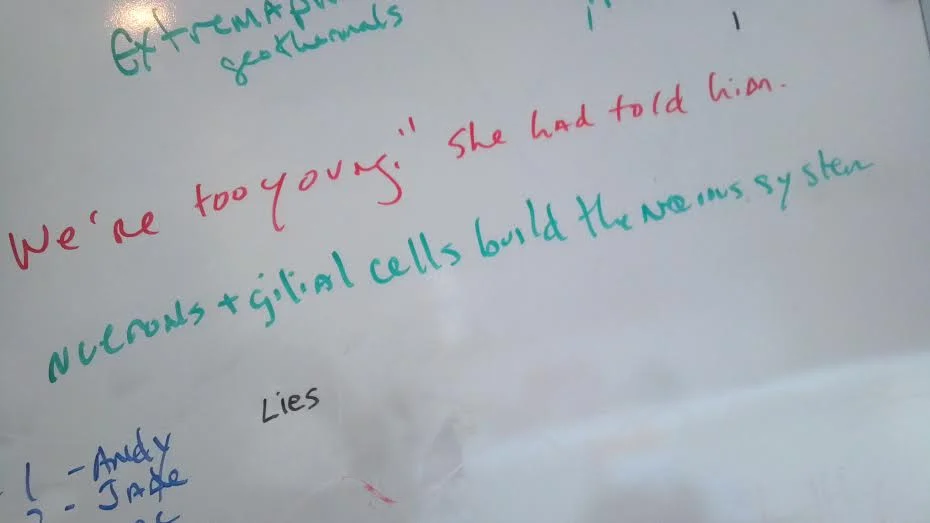 geothermals
We're too young." She had told him.
Nuerons + glilial cells build the nervous system
Lies
1 - Andy
2 - Jade